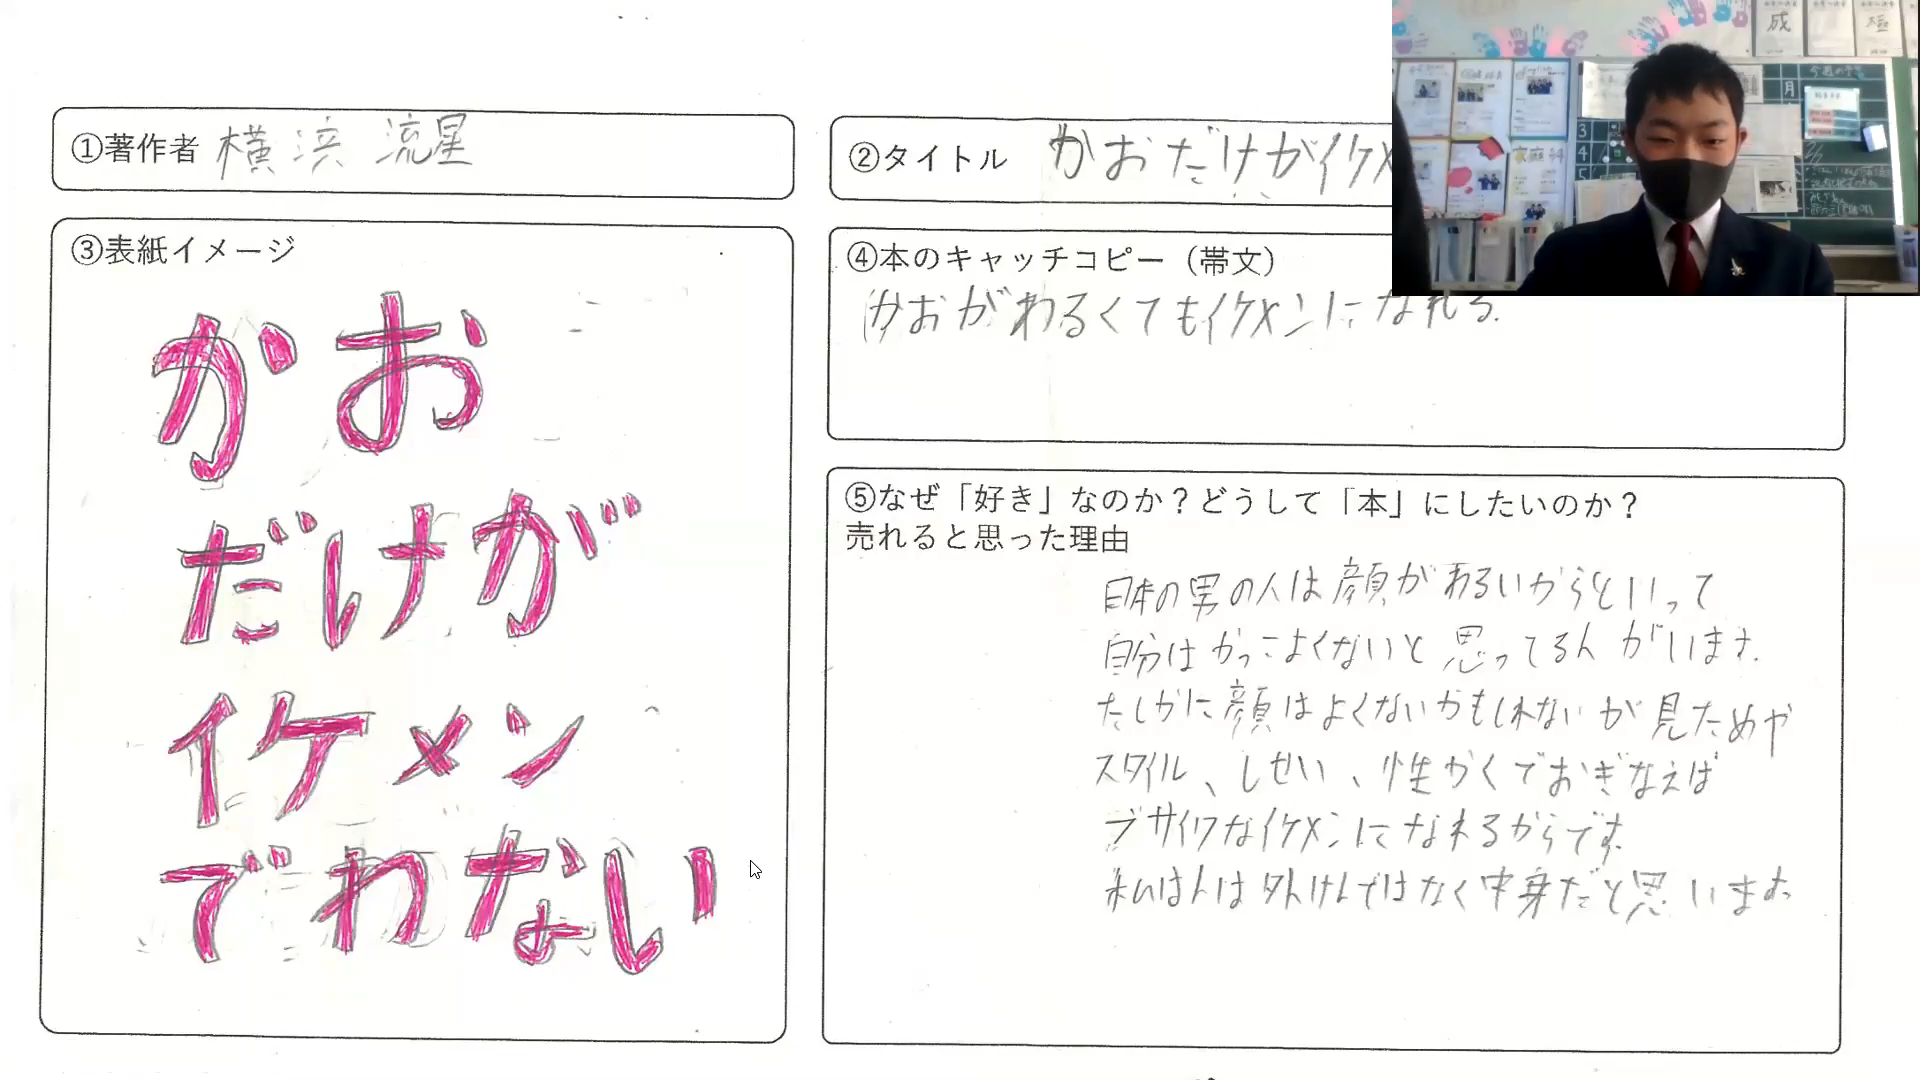 ①著作者 横浜 流星
②タイトル かおだけがイケメ
③表紙イメージ
かお
だけが
イケメン
でわない
④本のキャッチコピー（帯文）
かおがわるくてもイケメンになれる.
⑤なぜ「好き」なのか？どうして「本」にしたいのか？
売れると思った理由
日本の男の人は顔がわるいからといって
自分はかっこよくないと思ってる人がいます.
たしかに顔はよくないかもしれないが見ためや
スタイル、しせい、性かくでおぎなえば
ブサイクなイケメンになれるからです.
私は人は外けんではなく中身だと思います
成
極
月
3
4
5
家庭科